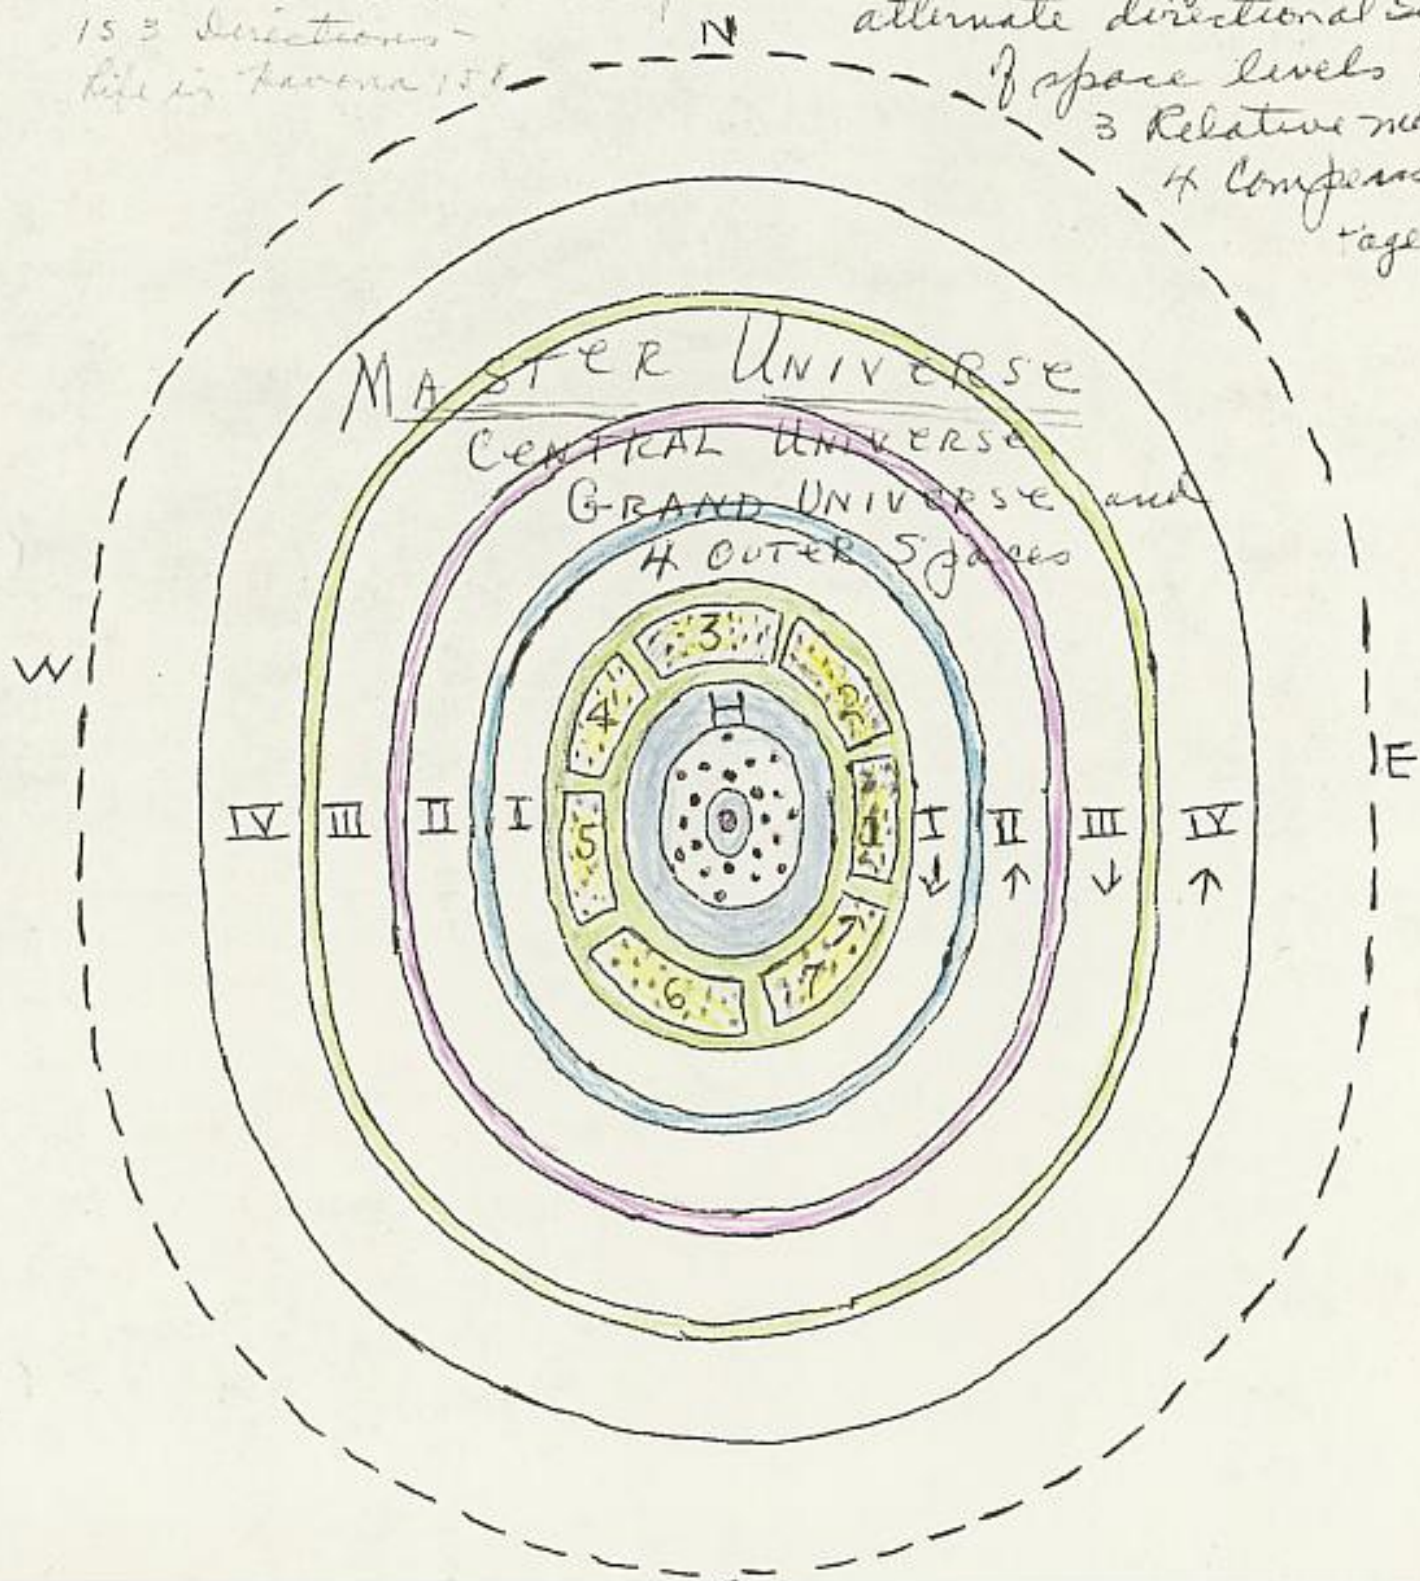 153 Directions -
Life in Havona 158
N
alternate directional
of space levels
3 Relative
4
MASTER UNIVERSE
CENTRAL UNIVERSE,
GRAND UNIVERSE and
4 OUTER Spaces
W
E
3
4
2
H
IV III II I 5 1 I II III IV
↓ ↑ ↓ ↑
6
7